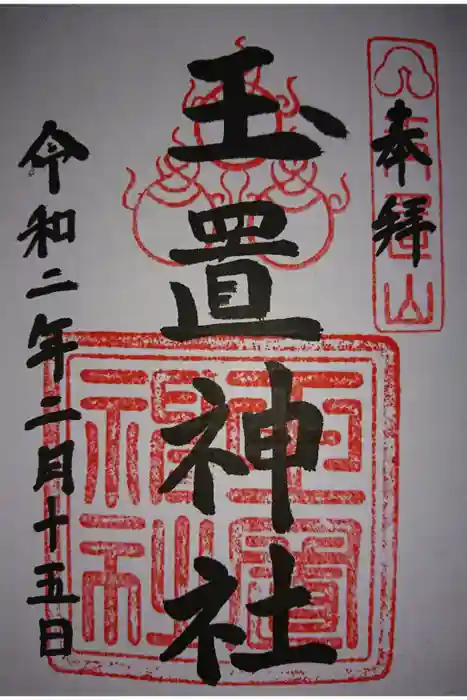 奉拝
玉置山
玉置神社
玉置
神社
令和二年二月十五日